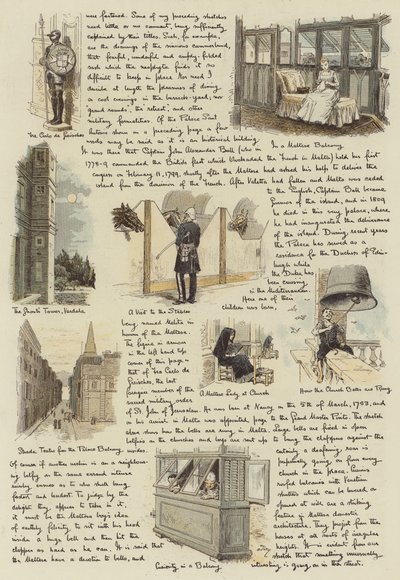 were fastened. Some of my preceding sketches
need little or no comment, being sufficiently
explained by their titles. Such, for example,
are the drawings of the
that fearful, wonderful and
sash which the neophyte finds it so
difficult to keep in place. Nor need I
dwell at length the pleasures of dining
on cool evenings in the barrack-yard, nor
guard mounts, the retreat, and other
military formalities. Of the Palace Sant
Antonio shown on a preceding page a few
words may be said as it is an historical building.
It was there that Captain John Alexander Ball (who in
1778-9 commanded the British fleet which blockaded the French in Malta) held his first
congress on February 11, 1799, shortly after the Maltese had asked his help to deliver the
island from the dominion of the French. After Valetta had fallen and Malta was ceded
to the English, Captain Ball became
Governor of the island, and in 1809
he died in this very palace, where
he had inaugurated the deliverance
of the island. During recent years
the Palace has served as a
residence for the Duchess of Edin-
burgh while
the Duke has
been cruising
in the Mediterranean.
Here one of their
children was born,
Fra Carlo de
In a Maltese Balcony
The Ghost's Tower, Verdala
A Visit to the Stables
being named Melita in
honour of the Maltese.
The figure in armour
in the left hand top
corner of this page is
that of Fra Carlo de
the last
member of the
sacred military order
of St. John of Jerusalem. He was born at Nancy on the 5th of March, 1703, and
on his arrival in Malta was appointed page to the Grand Master Pinto. The sketch
above shows how the bells are rung in Malta. Large bells are fixed in open
belfries on the churches and boys are sent up to bang the clappers against the
A Maltese Lady at Church
How the Church Bells are Rung
Strada Teatro from the Palace Balcony
Of course if another urchin is on a neighbour-
ing belfry, as the sound ensued intense
rivalry ensues as to who shall bang
fastest and loudest. To judge by the
delight they appear to take in it,
it must be the Maltese boy's idea
of earthly felicity to sit with his head
inside a huge bell and then hit the
clapper as hard as he can. It is said that
the Maltese have a devotion to bells, and
certainly a deafening din is
going on from every
church in the place. Queer
roofed balconies with Venetian
shutters which can be lowered or
opened at will are a striking
feature in Maltese domestic
architecture. They project from the
houses at all sorts of irregular
heights. It is seldom from one
shutter that something unusually
interesting is going on in the street.
Curiosity in a Balcony